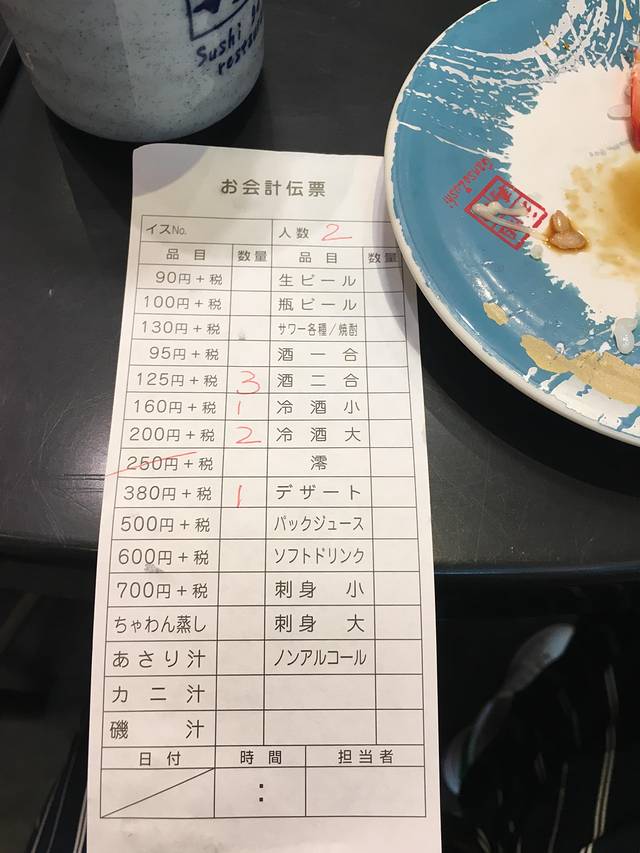 Sushi
お会計伝票
イスNo. 人数 2
品目 数量 品目 数量
90円+税 生ビール
100円+税 瓶ビール
130円+税 サワー各種/焼酎
95円+税 酒一合
125円+税 3 酒二合
160円+税 1 冷酒小
200円+税 2 冷酒大
250円+税 澪
380円+税 1 デザート
500円+税 パックジュース
600円+税 ソフトドリンク
700円+税 刺身 小
ちゃわん蒸し 刺身 大
あさり汁 ノンアルコール
カニ汁
磯汁
日付 時間 担当者
: